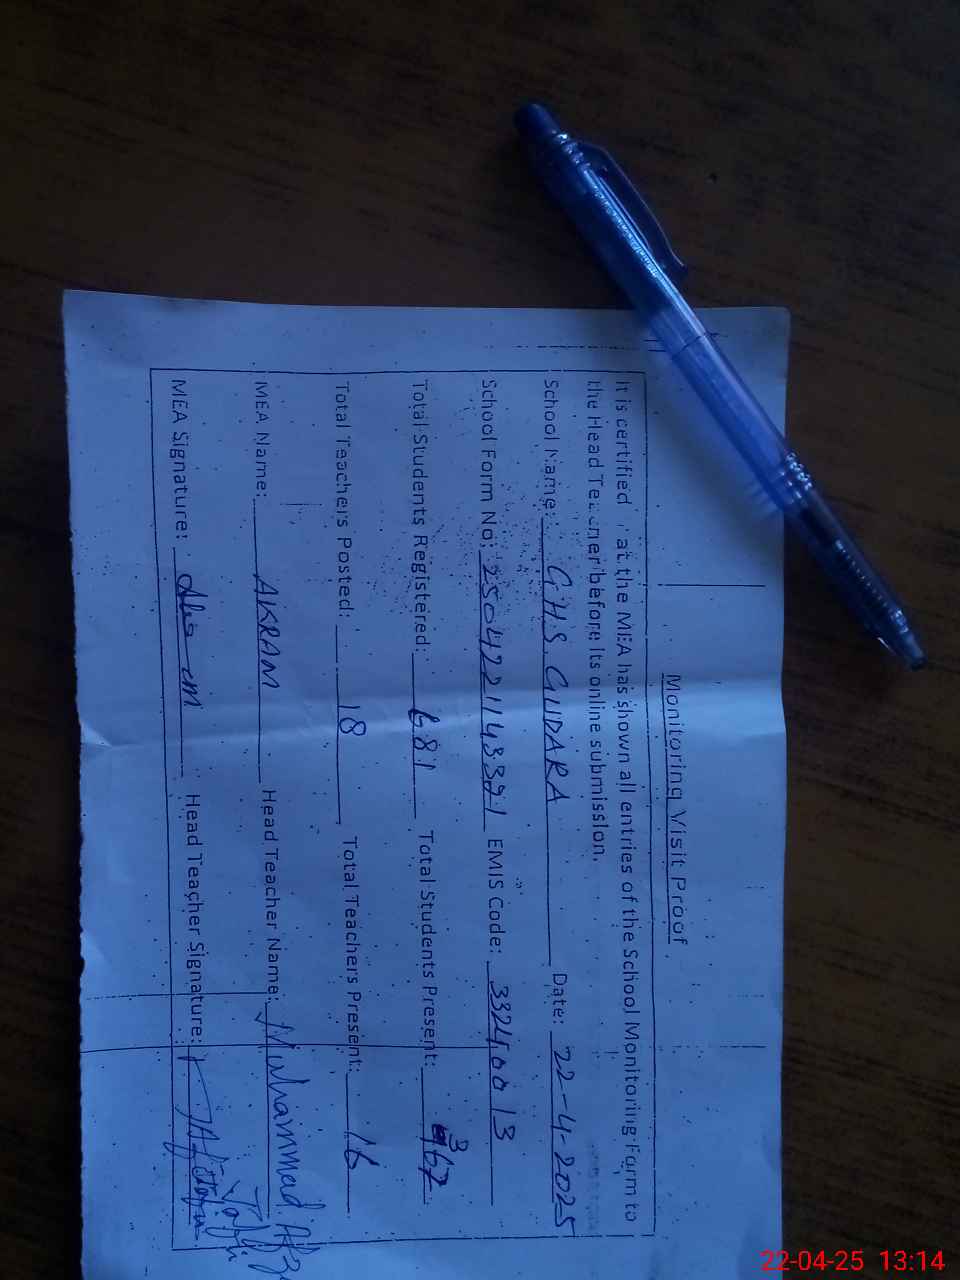 Monitoring Visit Proof
It is certified at the MEA has shown all entries of the School Monitoring Form to
the Head Teacher before its online submission.
School Name: G.H.S. GUDARA Date: 22-4-2025
School Form No: EMIS Code: 33240013
Total Students Registered: 681 Total Students Present: 367
Total Teachers Posted: 18 Total Teachers Present: 16
MEA Name: AKRAM Head Teacher Name: Muhammad
MEA Signature: Head Teacher Signature:
22-04-25 13:14